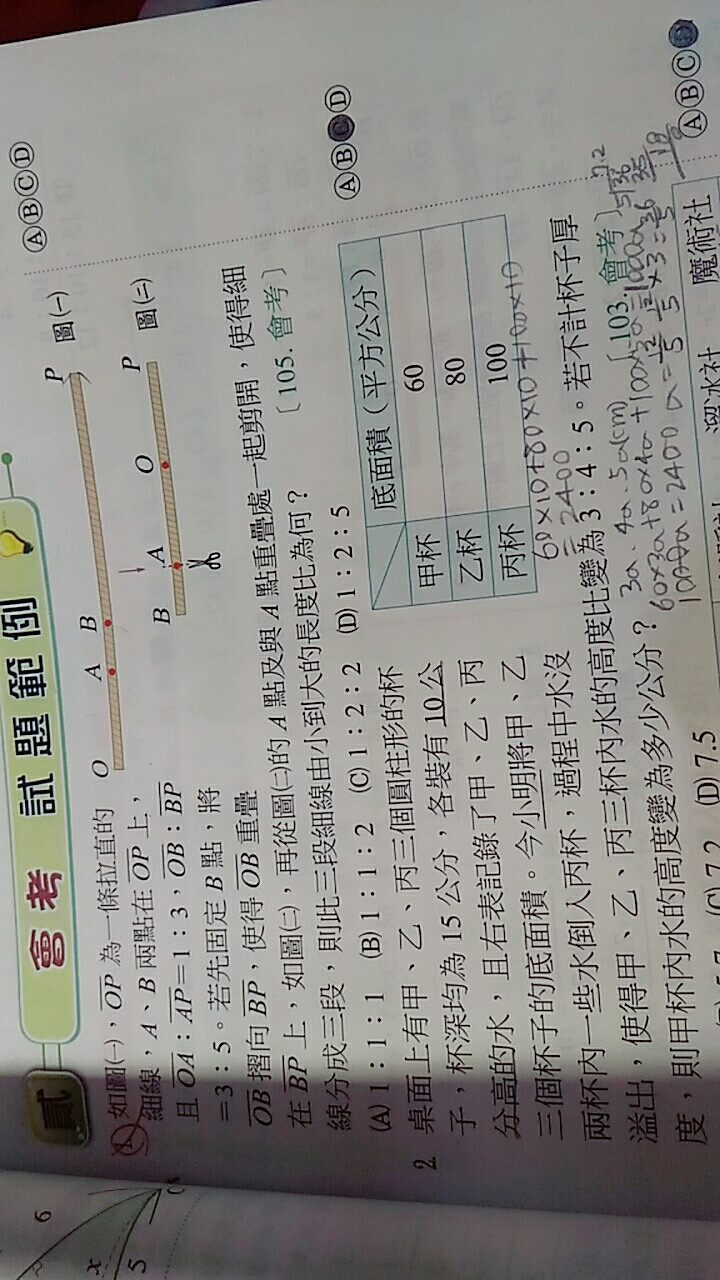 貳 會考 試題範例
如圖㈠，OP 為一條拉直的
細線，A、B 兩點在 OP 上，
且 OA：AP=1：3，OB：BP
=3：5。若先固定 B 點，將
OB 摺向 BP，使得 OB 重疊
在 BP 上，如圖㈡，再從圖㈡的 A 點及與 A 點重疊處一起剪開，使得細
線分成三段，則此三段細線由小到大的長度比為何？〔105. 會考〕
(A) 1：1：1 (B) 1：1：2 (C) 1：2：2 (D) 1：2：5
O A B P 圖㈠
B A O P 圖㈡
Ⓐ Ⓑ Ⓒ Ⓓ
2. 桌面上有甲、乙、丙三個圓柱形的杯
子，杯深均為 15 公分，各裝有 10 公
分高的水，且右表記錄了甲、乙、丙
三個杯子的底面積。今小明將甲、乙
兩杯內一些水倒入丙杯，過程中水沒
溢出，使得甲、乙、丙三杯內水的高度比變為 3：4：5。若不計杯子厚
度，則甲杯內水的高度變為多少公分？〔103. 會考〕
(C) 7.2 (D) 7.5
底面積（平方公分）
甲杯 60
乙杯 80
丙杯 100
Ⓐ Ⓑ C Ⓓ
60×10+80×10+100×10
=2400
3a、4a、5a(cm)
Ⓐ Ⓑ Ⓒ
溜冰社 魔術社
6
x
5